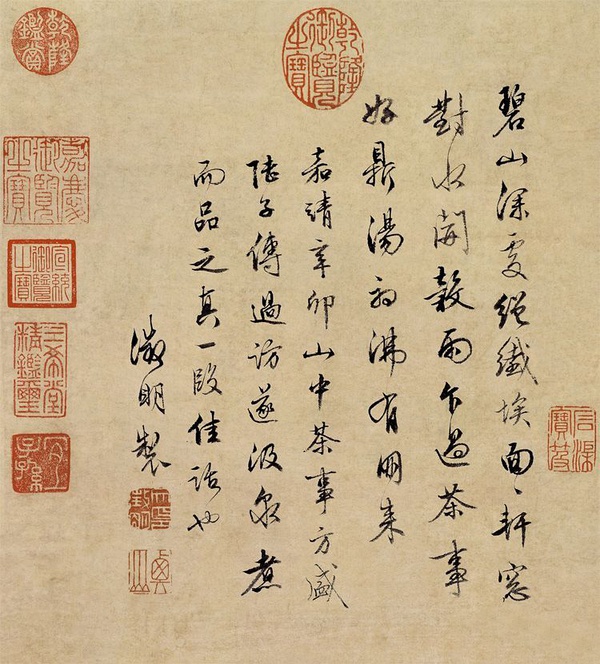 碧山深處絕纖埃面〻軒窓
對水開穀雨乍過茶事
好鼎湯初沸有朋來
嘉靖辛卯山中茶事方盛
陸子傳過訪遂汲泉煮
而品之真一段佳話也
徵明製
乾隆御覽之寶
乾隆鑑賞
嘉慶御覽之寶
宣統御覽之寶
三希堂精鑑璽
宜子孫